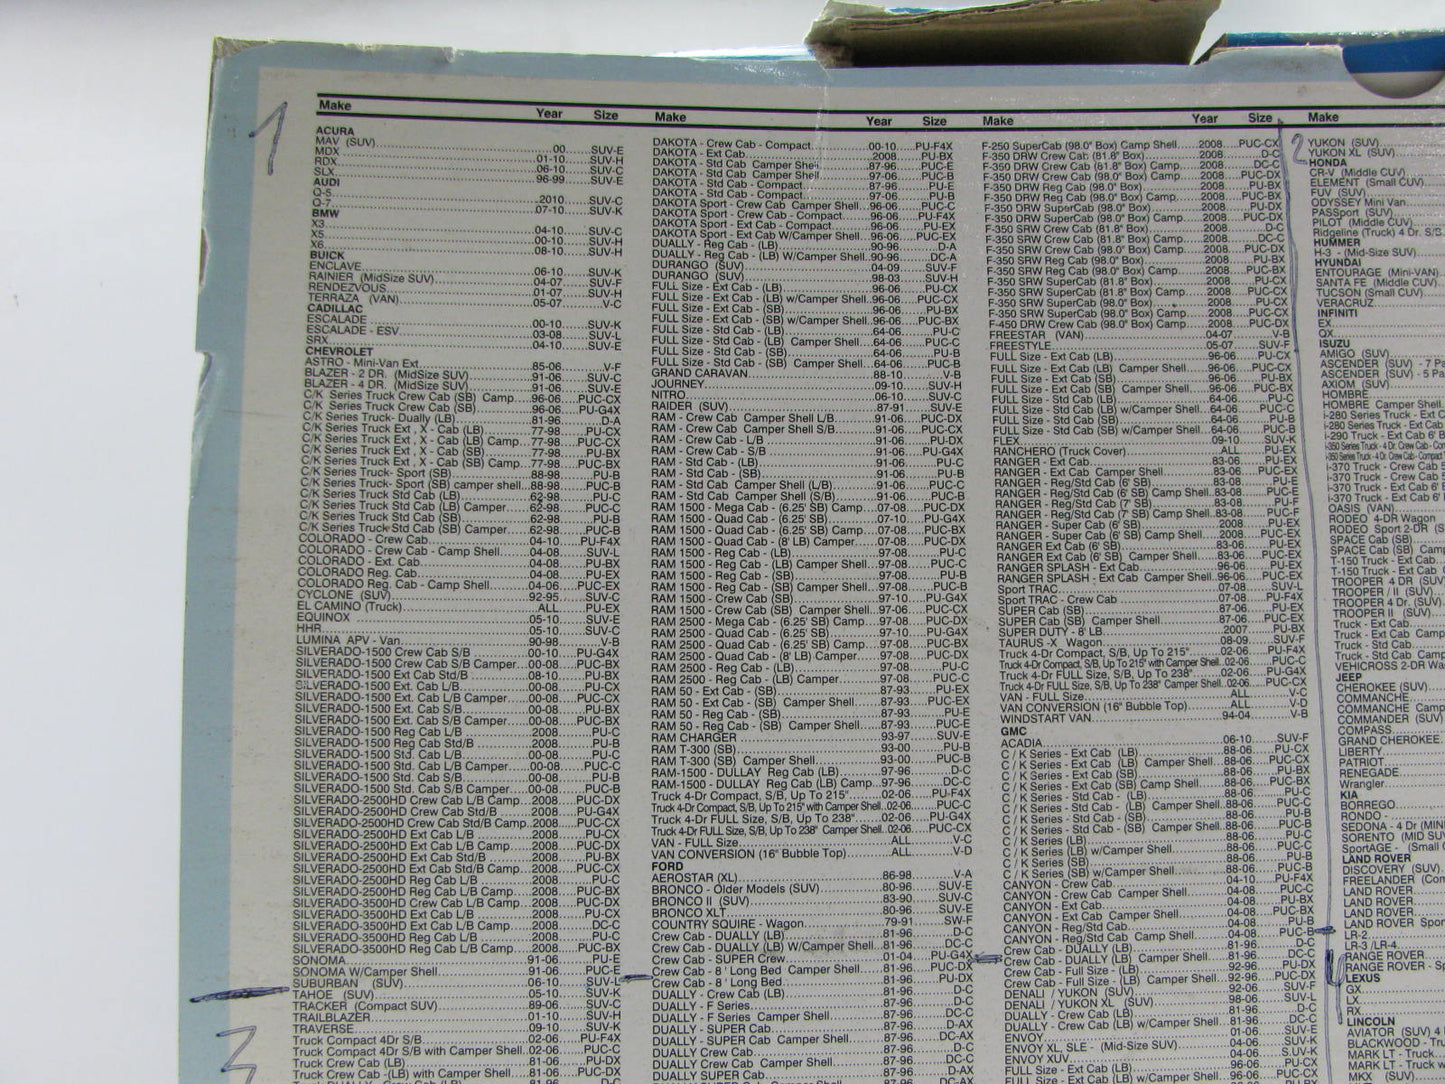 1
Make Year Size
ACURA
MAV (SUV) 00 SUV-E
MDX 01-10 SUV-H
RDX 06-10 SUV-C
SLX 96-99 SUV-E
AUDI
Q-5 2010 SUV-C
Q-7 07-10 SUV-K
BMW
X3 04-10 SUV-C
X5 00-10 SUV-H
X6 08-10 SUV-H
BUICK
ENCLAVE 06-10 SUV-K
RAINIER (MidSize SUV) 04-07 SUV-F
RENDEZVOUS 01-07 SUV-H
TERRAZA (VAN) 05-07 V-C
CADILLAC
ESCALADE 00-10 SUV-K
ESCALADE - ESV 03-08 SUV-L
SRX 04-10 SUV-E
CHEVROLET
ASTRO - Mini-Van Ext 85-06 V-F
BLAZER - 2 DR. (MidSize SUV) 91-06 SUV-C
BLAZER - 4 DR. (MidSize SUV) 91-06 SUV-E
C/K Series Truck Crew Cab (SB) Camp 96-06 PUC-CX
C/K Series Truck Crew Cab (SB) 96-06 PU-G4X
C/K Series Truck- Dually (LB) 81-96 D-A
C/K Series Truck Ext , X - Cab (LB) 77-98 PU-CX
C/K Series Truck Ext , X - Cab (LB) Camp 77-98 PUC-CX
C/K Series Truck Ext , X - Cab (SB) 77-98 PU-BX
C/K Series Truck Ext , X - Cab (SB) Camp 77-98 PUC-BX
C/K Series Truck- Sport (SB) 88-98 PU-B
C/K Series Truck- Sport (SB) camper shell 88-98 PUC-B
C/K Series Truck Std Cab (LB) 62-98 PU-C
C/K Series Truck Std Cab (LB) Camper 62-98 PUC-C
C/K Series Truck Std Cab (SB) 62-98 PU-B
C/K Series Truck Std Cab (SB) Camper 62-98 PUC-B
COLORADO - Crew Cab 04-10 PU-F4X
COLORADO - Crew Cab - Camp Shell 04-08 SUV-L
COLORADO - Ext. Cab 04-08 PU-EX
COLORADO Reg. Cab 04-08 PU-E
COLORADO Reg. Cab - Camp Shell 04-06 PUC-EX
CYCLONE (SUV) 92-95 SUV-C
EL CAMINO (Truck) ALL PU-EX
EQUINOX 05-10 SUV-E
HHR 05-10 SUV-C
LUMINA APV - Van 90-98 V-B
SILVERADO-1500 Crew Cab S/B 00-10 PU-G4X
SILVERADO-1500 Crew Cab S/B Camper 00-08 PUC-BX
SILVERADO-1500 Ext Cab Std/B 08-10 PU-BX
SILVERADO-1500 Ext. Cab L/B 00-08 PU-CX
SILVERADO-1500 Ext. Cab L/B Camper 00-08 PUC-CX
SILVERADO-1500 Ext. Cab S/B 00-08 PU-BX
SILVERADO-1500 Ext. Cab S/B Camper 00-08 PUC-BX
SILVERADO-1500 Reg Cab L/B 2008 PU-C
SILVERADO-1500 Reg Cab Std/B 2008 PU-B
SILVERADO-1500 Std. Cab L/B 00-08 PU-C
SILVERADO-1500 Std. Cab L/B Camper 00-08 PUC-C
SILVERADO-1500 Std. Cab S/B 00-08 PU-B
SILVERADO-1500 Std. Cab S/B Camper 00-08 PUC-B
SILVERADO-2500HD Crew Cab L/B Camp 2008 PUC-DX
SILVERADO-2500HD Crew Cab Std/B 2008 PU-G4X
SILVERADO-2500HD Crew Cab Std/B Camp 2008 PUC-CX
SILVERADO-2500HD Ext Cab L/B 2008 PU-CX
SILVERADO-2500HD Ext Cab L/B Camp 2008 PUC-DX
SILVERADO-2500HD Ext Cab Std/B 2008 PU-BX
SILVERADO-2500HD Ext Cab Std/B Camp 2008 PUC-CX
SILVERADO-2500HD Reg Cab L/B 2008 PU-C
SILVERADO-2500HD Reg Cab L/B Camp 2008 PUC-BX
SILVERADO-3500HD Crew Cab L/B Camp 2008 PUC-DX
SILVERADO-3500HD Ext Cab L/B 2008 PU-CX
SILVERADO-3500HD Ext Cab L/B Camp 2008 DC-C
SILVERADO-3500HD Reg Cab L/B 2008 PU-CX
SILVERADO-3500HD Reg Cab L/B Camp 2008 PUC-BX
SONOMA 91-06 PU-E
SONOMA W/Camper Shell 91-06 PUC-E
SUBURBAN (SUV) 06-10 SUV-L
TAHOE (SUV) 05-10 SUV-K
TRACKER (Compact SUV) 89-06 SUV-C
TRAILBLAZER 01-10 SUV-H
TRAVERSE 09-10 SUV-K
3
Truck Compact 4Dr S/B 02-06 PU-F4X
Truck Compact 4Dr S/B with Camper Shell 02-06 PUC-C
Truck Crew Cab (LB) 81-06 PU-DX
Truck Crew Cab (LB) with Camper Shell 81-06 PUC-DX
Make Year Size
DAKOTA - Crew Cab - Compact 00-10 PU-F4X
DAKOTA - Ext Cab 2008 PU-BX
DAKOTA - Std Cab Camper Shell 87-96 PUC-E
DAKOTA - Std Cab - Compact 87-96 PU-E
DAKOTA - Std Cab - Compact 97-06 PU-B
DAKOTA Sport - Crew Cab Camper Shell 96-06 PUC-C
DAKOTA Sport - Crew Cab - Compact 96-06 PU-F4X
DAKOTA Sport - Ext Cab - Compact 96-06 PU-EX
DAKOTA Sport - Ext Cab W/Camper Shell 96-06 PUC-EX
DUALLY - Reg Cab - (LB) 90-96 D-A
DUALLY - Reg Cab - (LB) W/Camper Shell 90-96 DC-A
DURANGO (SUV) 04-09 SUV-F
DURANGO (SUV) 98-03 SUV-H
FULL Size - Ext Cab - (LB) 96-06 PU-CX
FULL Size - Ext Cab - (LB) w/Camper Shell 96-06 PUC-CX
FULL Size - Ext Cab - (SB) 96-06 PU-BX
FULL Size - Ext Cab - (SB) w/Camper Shell 96-06 PUC-BX
FULL Size - Std Cab - (LB) 64-06 PU-C
FULL Size - Std Cab - (LB) Camper Shell 64-06 PUC-C
FULL Size - Std Cab - (SB) 64-06 PU-B
FULL Size - Std Cab - (SB) Camper Shell 64-06 PUC-B
GRAND CARAVAN 88-10 V-B
JOURNEY 09-10 SUV-H
NITRO 06-10 SUV-C
RAIDER (SUV) 87-91 SUV-E
RAM - Crew Cab Camper Shell L/B 91-06 PUC-DX
RAM - Crew Cab Camper Shell S/B 91-06 PUC-CX
RAM - Crew Cab - L/B 91-06 PU-DX
RAM - Crew Cab - S/B 91-06 PU-G4X
RAM - Std Cab - (LB) 91-06 PU-C
RAM - Std Cab - (SB) 91-06 PU-B
RAM - Std Cab Camper Shell (L/B) 91-06 PUC-C
RAM - Std Cab Camper Shell (S/B) 91-06 PUC-B
RAM 1500 - Mega Cab - (6.25' SB) Camp 07-08 PUC-DX
RAM 1500 - Quad Cab - (6.25' SB) 07-10 PU-G4X
RAM 1500 - Quad Cab - (6.25' SB) Camp 07-08 PUC-BX
RAM 1500 - Quad Cab - (8' LB) Camper 07-08 PUC-DX
RAM 1500 - Reg Cab - (LB) 97-08 PU-C
RAM 1500 - Reg Cab - (LB) Camper Shell 97-08 PUC-C
RAM 1500 - Reg Cab - (SB) 97-08 PU-B
RAM 1500 - Reg Cab - (SB) Camper Shell 97-08 PUC-B
RAM 1500 - Crew Cab (SB) 97-10 PU-G4X
RAM 1500 - Crew Cab (SB) Camper Shell 97-06 PUC-CX
RAM 2500 - Mega Cab - (6.25' SB) Camp 07-08 PUC-DX
RAM 2500 - Quad Cab (6.25' SB) 97-10 PU-G4X
RAM 2500 - Quad Cab - (6.25' SB) Camp 07-08 PUC-CX
RAM 2500 - Quad Cab - (8' LB) Camper 07-08 PUC-DX
RAM 2500 - Reg Cab - (LB) 97-08 PU-C
RAM 2500 - Reg Cab - (LB) Camper Shell 97-08 PUC-C
RAM 50 - Ext Cab - (SB) 87-93 PU-EX
RAM 50 - Ext Cab - (SB) Camper Shell 87-93 PUC-EX
RAM 50 - Reg Cab - (SB) 87-93 PU-E
RAM 50 - Reg Cab - (SB) Camper Shell 87-93 PUC-E
RAM CHARGER 93-97 SUV-E
RAM T-300 (SB) 93-00 PU-B
RAM T-300 (SB) Camper Shell 93-00 PUC-B
RAM-1500 - DULLAY Reg Cab (LB) 97-96 D-C
RAM-1500 - DULLAY Reg Cab (LB) Camp 97-96 DC-C
Truck 4-Dr Compact, S/B, Up To 215" 02-06 PU-F4X
Truck 4-Dr Compact, S/B, Up To 215" with Camper Shell 02-06 PUC-C
Truck 4-Dr FULL Size, S/B, Up To 238" 02-06 PU-G4X
Truck 4-Dr FULL Size, S/B, Up To 238" Camper Shell 02-06 PUC-CX
VAN - FULL Size ALL V-C
VAN CONVERSION (16" Bubble Top) ALL V-D
FORD
AEROSTAR (XL) 86-98 V-A
BRONCO - Older Models (SUV) 80-96 SUV-E
BRONCO II (SUV) 83-90 SUV-C
BRONCO XLT 80-96 SUV-E
COUNTRY SQUIRE - Wagon 79-91 SW-F
Crew Cab - DUALLY (LB) 81-96 D-C
Crew Cab - DUALLY (LB) W/Camper Shell 81-96 DC-C
Crew Cab - SUPER Crew 01-04 PU-G4X
Crew Cab - 8 ' Long Bed Camper Shell 81-96 PUC-DX
Crew Cab - 8 ' Long Bed 81-96 PU-DX
DUALLY - Crew Cab (LB) 81-96 D-C
DUALLY - F Series 87-96 D-C
DUALLY - F Series Camper Shell 87-96 DC-C
DUALLY - SUPER Cab 87-96 D-AX
DUALLY - SUPER Cab Camper Shell 87-96 DC-AX
DUALLY Crew Cab 87-96 D-C
DUALLY Crew Cab Camper Shell 87-96 DC-C
DUALLY SUPER Cab 87-96 D-AX
Make Year Size
F-250 SuperCab (98.0" Box) Camp Shell 2008 PUC-CX
F-350 DRW Crew Cab (81.8" Box) 2008 D-C
F-350 DRW Crew Cab (81.8" Box) Camp 2008 DC-C
F-350 DRW Crew Cab (98.0" Box) 2008 PUC-DX
F-350 DRW Reg Cab (98.0" Box) 2008 PU-BX
F-350 DRW Reg Cab (98.0" Box) Camp 2008 PUC-BX
F-350 DRW SuperCab (98.0" Box) 2008 PU-DX
F-350 DRW SuperCab (98.0" Box) Camp 2008 PUC-DX
F-350 SRW Crew Cab (81.8" Box) 2008 D-C
F-350 SRW Crew Cab (81.8" Box) Camp 2008 DC-C
F-350 SRW Crew Cab (98.0" Box) Camp 2008 PUC-DX
F-350 SRW Reg Cab (98.0" Box) 2008 PU-BX
F-350 SRW Reg Cab (98.0" Box) Camp 2008 PUC-BX
F-350 SRW SuperCab (81.8" Box) 2008 PU-CX
F-350 SRW SuperCab (81.8" Box) Camp 2008 PUC-CX
F-350 SRW SuperCab (98.0" Box) 2008 PU-CX
F-350 SRW SuperCab (98.0" Box) Camp 2008 PUC-CX
F-450 DRW Crew Cab (98.0" Box) Camp 2008 PUC-DX
FREESTAR (VAN) 04-07 V-B
FREESTYLE 05-07 SUV-F
FULL Size - Ext Cab (LB) 96-06 PU-CX
FULL Size - Ext Cab (LB) Camper Shell 96-06 PUC-CX
FULL Size - Ext Cab (SB) 96-06 PU-BX
FULL Size - Ext Cab (SB) Camper Shell 96-06 PUC-BX
FULL Size - Std Cab (LB) 64-06 PU-C
FULL Size - Std Cab (LB) w/Camper Shell 64-06 PUC-C
FULL Size - Std Cab (SB) 64-06 PU-B
FULL Size - Std Cab (SB) w/Camper Shell 64-06 PUC-B
FLEX 09-10 SUV-K
RANCHERO (Truck Cover) ALL PU-EX
RANGER - Ext Cab 83-06 PU-EX
RANGER - Ext Cab Camper Shell 83-06 PUC-EX
RANGER - Reg/Std Cab (6' SB) 83-08 PU-E
RANGER - Reg/Std Cab (6' SB) Camp Shell 83-08 PUC-E
RANGER - Reg/Std Cab (7' SB) 83-08 PU-F
RANGER - Reg/Std Cab (7' SB) Camp Shell 83-08 PUC-F
RANGER - Super Cab (6' SB) 2008 PU-EX
RANGER - Super Cab (6' SB) Camp Shell 2008 PUC-EX
RANGER Ext Cab (6' SB) 83-06 PU-EX
RANGER Ext Cab (6' SB) Camper Shell 83-06 PUC-EX
RANGER SPLASH - Ext Cab 96-06 PU-EX
RANGER SPLASH - Ext Cab Camper Shell 96-06 PUC-EX
Sport TRAC 07-08 SUV-L
Sport TRAC - Crew Cab 07-08 PU-F4X
SUPER Cab (SB) 87-06 PU-EX
SUPER Cab (SB) Camper Shell 87-06 PUC-EX
SUPER DUTY - 8' LB 2007 PU-BX
TAURUS -X Wagon 08-09 SUV-F
Truck 4-Dr Compact, S/B, Up To 215" 02-06 PU-F4X
Truck 4-Dr Compact, S/B, Up To 215" with Camper Shell 02-06 PUC-C
Truck 4-Dr FULL Size, S/B, Up To 238" 02-06 PU-G4X
Truck 4-Dr FULL Size, S/B, Up To 238" Camper Shell 02-06 PUC-CX
VAN - FULL Size ALL V-C
VAN CONVERSION (16" Bubble Top) ALL V-D
WINDSTART VAN 94-04 V-B
GMC
ACADIA 06-10 SUV-F
C / K Series - Ext Cab (LB) 88-06 PU-CX
C / K Series - Ext Cab (LB) Camper Shell 88-06 PUC-CX
C / K Series - Ext Cab (SB) 88-06 PU-BX
C / K Series - Ext Cab (SB) Camper Shell 88-06 PUC-BX
C / K Series - Std Cab - (LB) 88-06 PU-C
C / K Series - Std Cab - (LB) Camper Shell 88-06 PUC-C
C / K Series - Std Cab - (SB) 88-06 PU-B
C / K Series - Std Cab - (SB) Camper Shell 88-06 PUC-B
C / K Series (LB) 88-06 PU-C
C / K Series (LB) w/Camper Shell 88-06 PUC-C
C / K Series (SB) 88-06 PU-B
C / K Series (SB) w/Camper Shell 88-06 PUC-B
CANYON - Crew Cab 04-10 PU-F4X
CANYON - Crew Cab Camper Shell 04-08 PUC-C
CANYON - Ext Cab 04-08 PU-BX
CANYON - Ext Cab Camper Shell 04-08 PUC-BX
CANYON - Reg/Std Cab 04-08 PU-B
CANYON - Reg/Std Cab Camp Shell 04-08 PUC-B
Crew Cab - DUALLY (LB) 81-96 D-C
Crew Cab - DUALLY (LB) Camper Shell 81-96 DC-C
Crew Cab - Full Size - (LB) 92-96 PU-DX
Crew Cab - Full Size - (LB) Camper Shell 92-96 PUC-DX
DENALI / YUKON (SUV) 92-06 SUV-F
DENALI / YUKON XL (SUV) 98-06 SUV-L
DUALLY - Crew Cab (LB) 81-96 D-C
DUALLY - Crew Cab (LB) w/Camper Shell 81-96 DC-C
ENVOY 01-06 SUV-E
ENVOY XL, SLE - (Mid-Size SUV) 04-06 SUV-K
ENVOY XUV 04-06 SUV-K
FULL Size - Ext Cab (LB) 96-06 PU-CX
FULL Size - Ext Cab (LB) w/Camper Shell 96-06 PUC-CX
2
Make
YUKON (SUV)
YUKON XL (SUV)
HONDA
CR-V (Middle CUV)
ELEMENT (Small CUV)
FUV (SUV)
ODYSSEY Mini Van
PASSport (SUV)
PILOT (Middle CUV)
Ridgeline (Truck) 4 Dr. S/B
HUMMER
H-3 - (Mid-Size SUV)
HYUNDAI
ENTOURAGE (Mini-VAN)
SANTA FE (Middle CUV)
TUCSON (Small CUV)
VERACRUZ
INFINITI
EX
QX
ISUZU
AMIGO (SUV)
ASCENDER (SUV) - 7 Pa
ASCENDER (SUV) - 5 Pa
AXIOM (SUV)
HOMBRE
HOMBRE Camper Shell
i-280 Series Truck - Ext C
i-280 Series Truck - Ext Cab
i-290 Truck - Ext Cab 6' B
i-350 Series Truck - 4 Dr. Crew Cab - Com
i-350 Series Truck - 4 Dr. Crew Cab - Compact
i-370 Truck - Crew Cab
i-370 Truck - Crew Cab
i-370 Truck - Ext Cab 6'
i-370 Truck - Ext Cab 6'
OASIS (VAN)
RODEO 4-DR Wagon
RODEO Sport 2-DR
SPACE Cab (SB)
SPACE Cab (SB) Camper
T-150 Truck - Ext Cab
T-150 Truck - Ext Cab
TROOPER 4 DR (SUV)
TROOPER / II (SUV)
TROOPER 4 Dr. (SUV)
TROOPER II (SUV)
Truck - Ext Cab
Truck - Ext Cab Camper
Truck - Std Cab
Truck - Std Cab Camp
VEHICROSS 2-DR Wa
JEEP
CHEROKEE (SUV)
COMMANCHE
COMMANCHE Camper
COMMANDER (SUV)
COMPASS
GRAND CHEROKEE
LIBERTY
PATRIOT
RENEGADE
Wrangler
KIA
BORREGO
RONDO -
SEDONA - 4 Dr (MINI
SORENTO (MID SU
SportAGE - (Small C
LAND ROVER
DISCOVERY (SUV)
FREELANDER (Com
LAND ROVER
LAND ROVER
LAND ROVER
LAND ROVER Spor
LR-2
LR-3 /LR-4
RANGE ROVER
RANGE ROVER - Sp
4
LEXUS
GX
LX
RX
LINCOLN
AVIATOR (SUV) 4
BLACKWOOD - Tru
MARK LT - Truck
MARK LT - Truck
MKX (SUV)